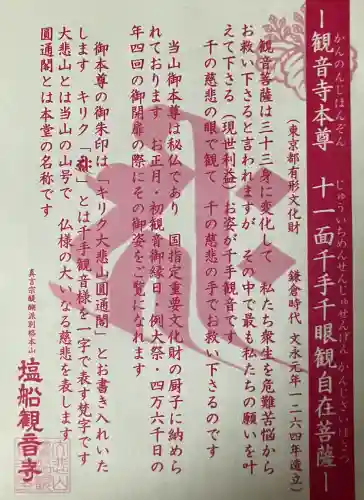 ー観音寺本尊 十一面千手千眼観自在菩薩ー
かんのんじほんぞん じゅういちめんせんじゅせんげん かんじざいぼさつ
(東京都有形文化財 鎌倉時代 文永元年一二六四年造立)
観音菩薩は三十三身に変化して 私たち衆生を危難苦悩から
お救い下さると言われますが その中で最も私たちの願いを叶
えて下さる(現世利益)お姿が千手観音です
千の慈悲の眼で観て 千の慈悲の手でお救い下さるのです
当山御本尊は秘仏であり 国指定重要文化財の厨子に納めら
れております お正月・初観音御縁日・例大祭・四万六千日の
年四回の御開扉の際にその御姿をご覧になれます
御本尊の御朱印は「キリク大悲山圓通閣」とお書き入れいた
します キリク「𑖮𑖿𑖨𑖱𑖾」とは千手観音様を一字で表す梵字です
大悲山とは当山の山号で 仏様の大いなる慈悲を表します
圓通閣とは本堂の名称です
真言宗醍醐派別格本山
塩船観音寺